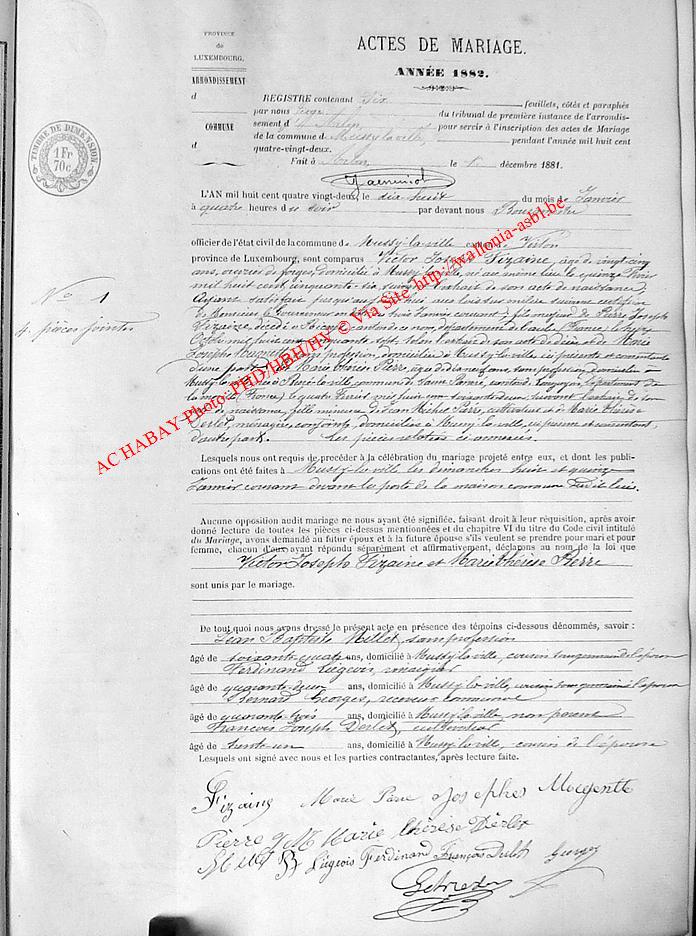 PROVINCE
de
LUXEMBOURG.
ARRONDISSEMENT
d
COMMUNE
d
TIMBRE DE DIMENSION
1 Fr
70c
ACTES DE MARIAGE.
ANNÉE 1882.
REGISTRE contenant Six feuillets, côtés et paraphés
par nous Juge du tribunal de première instance de l'arrondis-
sement d'Arlon, pour servir à l'inscription des actes de Mariage
de la commune de Mussy-la-ville, pendant l'année mil huit cent
quatre-vingt-deux.
Fait à Arlon le décembre 1881.
L'AN mil huit cent quatre vingt-deux, le dix huit du mois de Janvier
à quatre heures du soir par devant nous
officier de l'état civil de la commune de Mussy-la-ville canton de Virton
province de Luxembourg, sont comparus Victor Joseph Fizaine, âgé de vingt-cinq
ans, ouvrier de forges, domicilié à Mussy-la-ville, né au même lieu le quinze
mil huit cent cinquante-six, suivant extrait de son acte de naissance,
ayant satisfait jusqu'aujourd'hui aux lois sur milice suivant certificat
de Monsieur le Gouverneur courant; fils majeur de Pierre Joseph
Fizaine, décédé à canton de ce nom, département de l'aube (France) le
mil huit cent cinquante sept, selon extrait de son acte de décès et de Marie
Joseph profession, domiciliée à Mussy-la-ville, ici présente et consentante
d'une part; Marie Thérèse Pierre, âgée de dix neuf ans, sans profession, domiciliée à
Mussy-la-ville, née à commune de canton de Longuyon, département de
la (France) le quatre Février mil huit cent soixante deux, suivant extrait de son
naissance, fille mineure de Jean Pierre, cultivateur et de Marie Thérèse
Derlet, ménagère, conjoints, domiciliés à Mussy-la-ville, ici présents et consentants,
d'autre part. Les pièces relatées ci-annexées.
N° 1
4. pièces jointes
Lesquels nous ont requis de procéder à la célébration du mariage projeté entre eux, et dont les publi-
cations ont été faites à Mussy-la-ville les dimanches huit et quinze
Janvier courant devant la porte de la maison commune dudit lieu.
Aucune opposition audit mariage ne nous ayant été signifiée, faisant droit à leur réquisition, après avoir
donné lecture de toutes les pièces ci-dessus mentionnées et du chapitre VI du titre du Code civil intitulé
du Mariage, avons demandé au futur époux et à la future épouse s'ils veulent se prendre pour mari et pour
femme, chacun d'eux ayant répondu séparément et affirmativement, déclarons au nom de la loi que
Victor Joseph Fizaine et Marie Thérèse Pierre
sont unis par le mariage.
De tout quoi nous avons dressé le présent acte en présence des témoins ci-dessous dénommés, savoir :
Jean Baptiste Millet, sans profession
âgé de soixante-quatre ans, domicilié à Mussy-la-ville, cousin
Ferdinand Liégeois,
âgé de quarante-deux ans, domicilié à Mussy-la-ville, cousin
Bernard Georges, receveur communal
âgé de quarante-trois ans, domicilié à Mussy-la-ville, non parent
François Joseph Derlet, cultivateur
âgé de trente-un ans, domicilié à Mussy-la-ville, cousin de l'épouse
Lesquels ont signé avec nous et les parties contractantes, après lecture faite.
Fizaine Marie Pierre Josephe
Pierre J M Marie thérèse Derlet
Liégeois Ferdinand François Derlet Georges
AC HABAY Photo: PHD/HBH/HY © Via Site http://wallonia-asbl.be